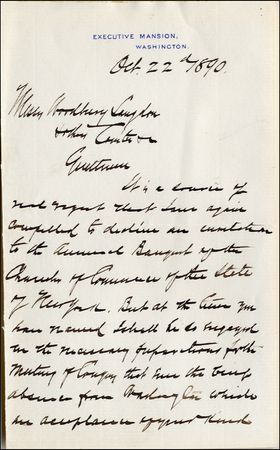 EXECUTIVE MANSION,
WASHINGTON.
Oct. 22d 1890.
Messrs Woodbury Langdon
& others
Gentlemen
It is a source of
real regret that I am again
compelled to decline an invitation
to the Annual Banquet of the
Chamber of Commerce of the State
of New York. But at the time you
have named I shall be so engaged
in the necessary preparations for the
Meeting of Congress that even the brief
absence from Washington which
an acceptance of your kind